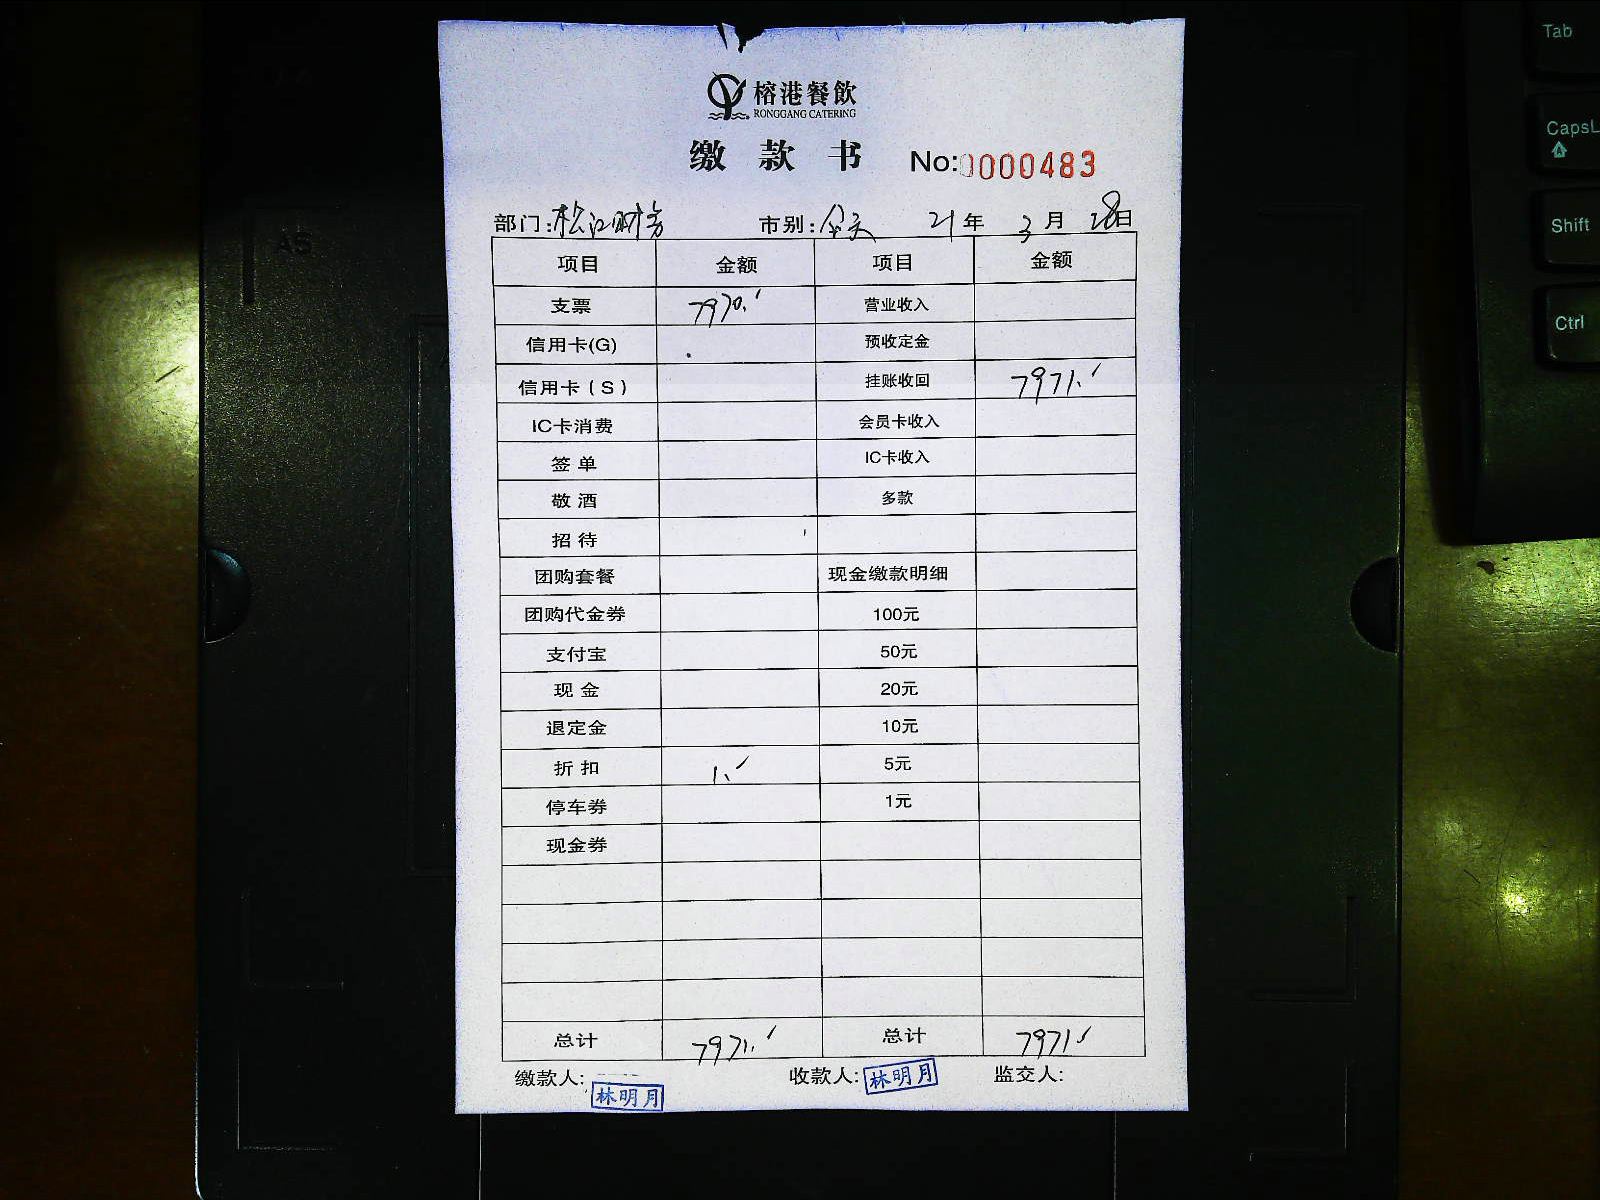 榕港餐飲
RONGGANG CATERING
缴款书 No:0000483
部门:松江财务 市别:全天 21年3月28日
项目 金额 项目 金额
支票 7970. 营业收入
信用卡(G) 预收定金
信用卡(S) 挂账收回 7971.
IC卡消费 会员卡收入
签单 IC卡收入
敬酒 多款
招待
团购套餐 现金缴款明细
团购代金券 100元
支付宝 50元
现金 20元
退定金 10元
折扣 1. 5元
停车券 1元
现金券
总计 7971. 总计 7971
缴款人: 林明月 收款人: 林明月 监交人:
Tab
CapsL
Shift
Ctrl